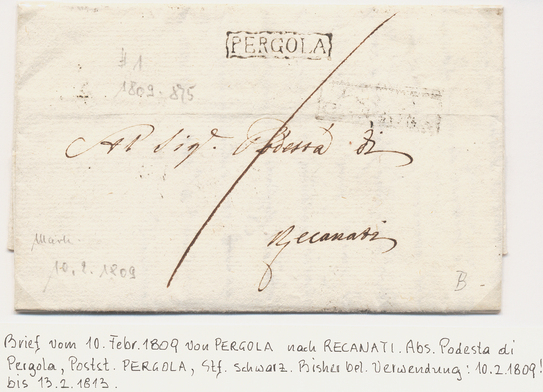 PERGOLA
# 1
1809 - 875
Al Sigr. Podestà di
Recanati
Mark
10. 2. 1809
B -
Brief vom 10. Febr. 1809 von PERGOLA nach RECANATI. Abs. Podesta di
Pergola, Postst. PERGOLA, Stf. schwarz. Bisher bel. Verwendung: 10.2.1809!
bis 13.2.1813.